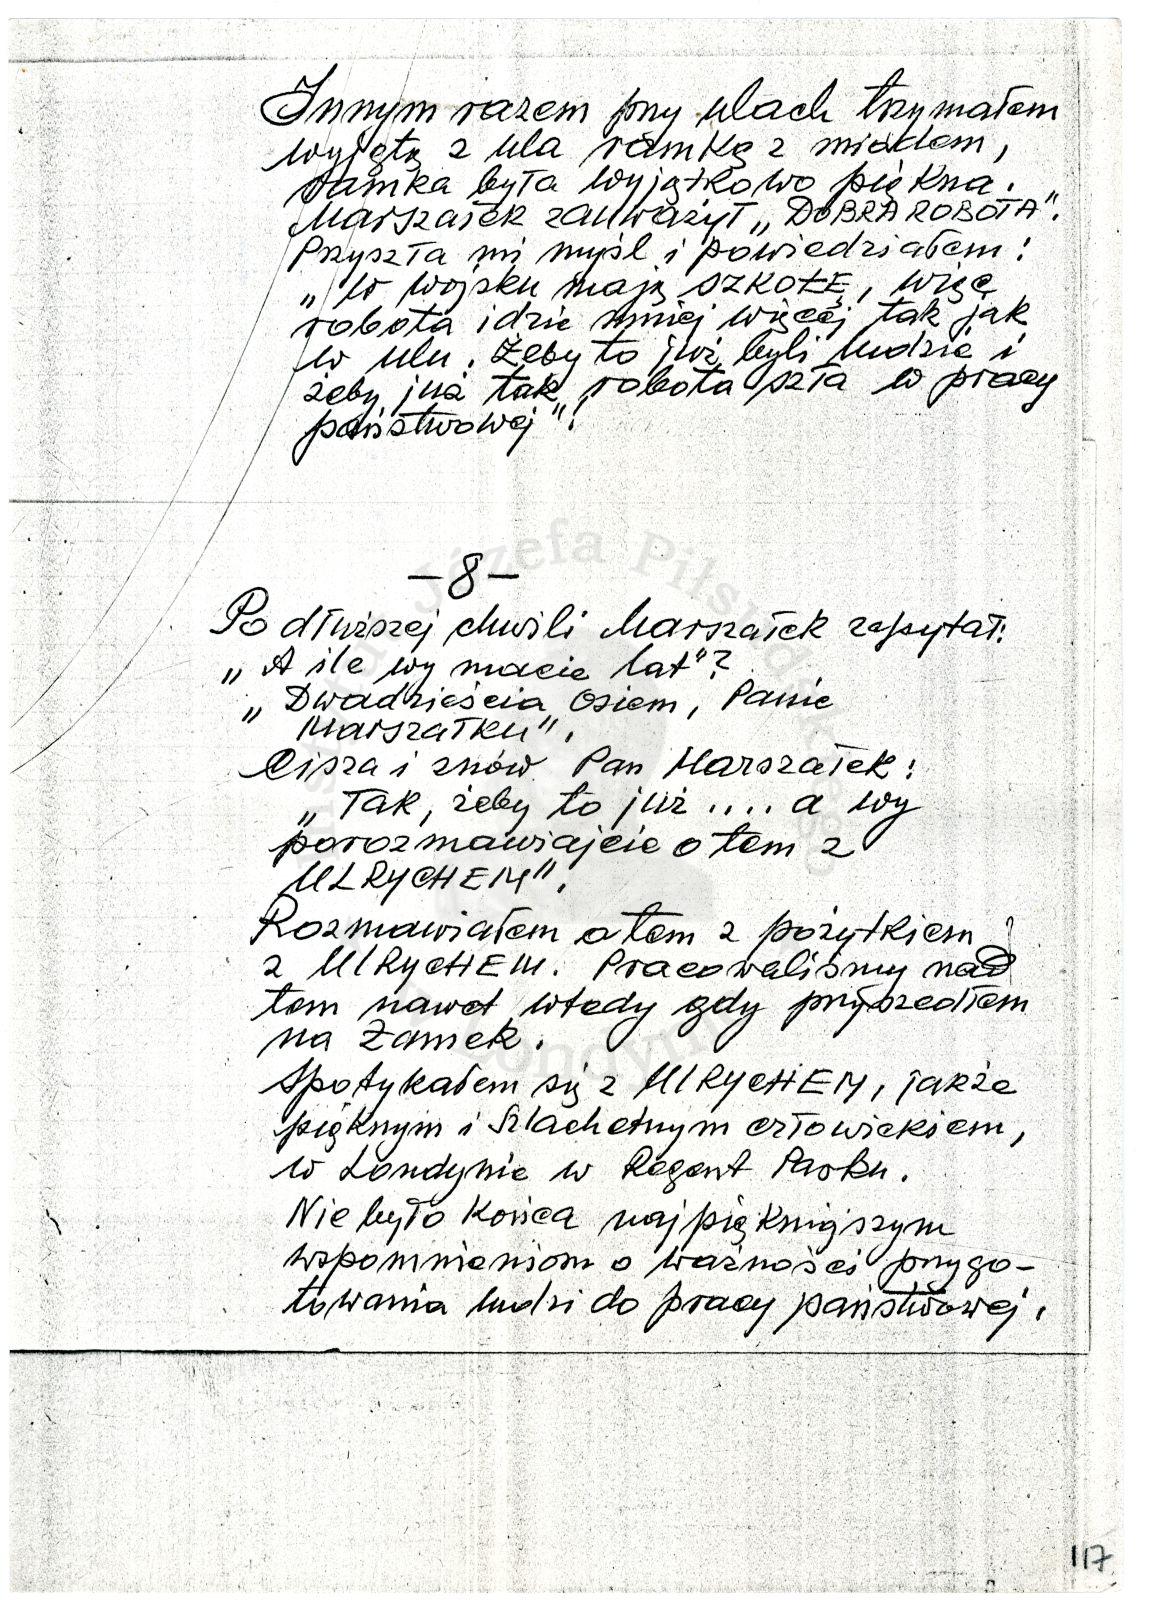 Innym razem przy ulach trzymałem
wyjętą z ula ramkę z miodem,
ramka była wyjątkowo piękna.
Marszałek zauważył „DOBRA ROBOTA".
Przyszła mi myśl i powiedziałem:
„w wojsku mają SZKOŁĘ, więc
robota idzie mniej więcej tak jak
w ulu. Żeby to już byli ludzie i
żeby już tak robota szła w pracy
państwowej"!
– 8 –
Po dłuższej chwili Marszałek zapytał:
„A ile wy macie lat"?
„Dwadzieścia Osiem, Panie
Marszałku".
Cisza i znów Pan Marszałek:
„Tak, żeby to już .... a wy
porozmawiajcie o tem z
ULRYCHEM".
Rozmawiałem o tem z pożytkiem
z ULRYCHEM. Pracowaliśmy nad
tem nawet wtedy gdy przyszedłem
na Zamek.
Spotykałem się z ULRYCHEM, także
pięknym i Szlachetnym człowiekiem,
w Londynie w Regent Parku.
Nie było Końca najpiękniejszym
wspomnieniom o ważności przygo-
towania ludzi do pracy państwowej.
117